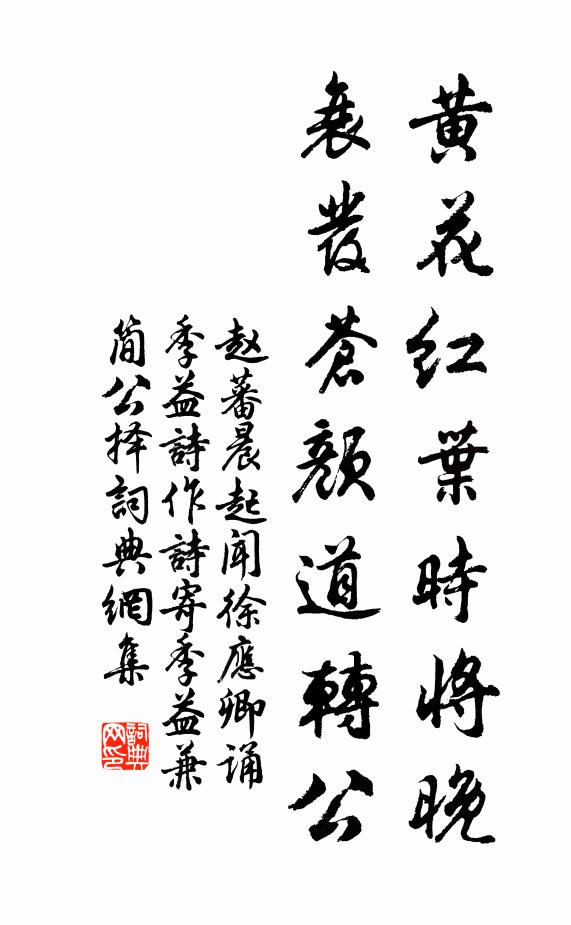 黄花红葉時將晚
衰发蒼顏道轉公
赵蕃晨起闻徐應卿诵
季益詩作詩寄季益兼
简公择詞典網集
詞典网印